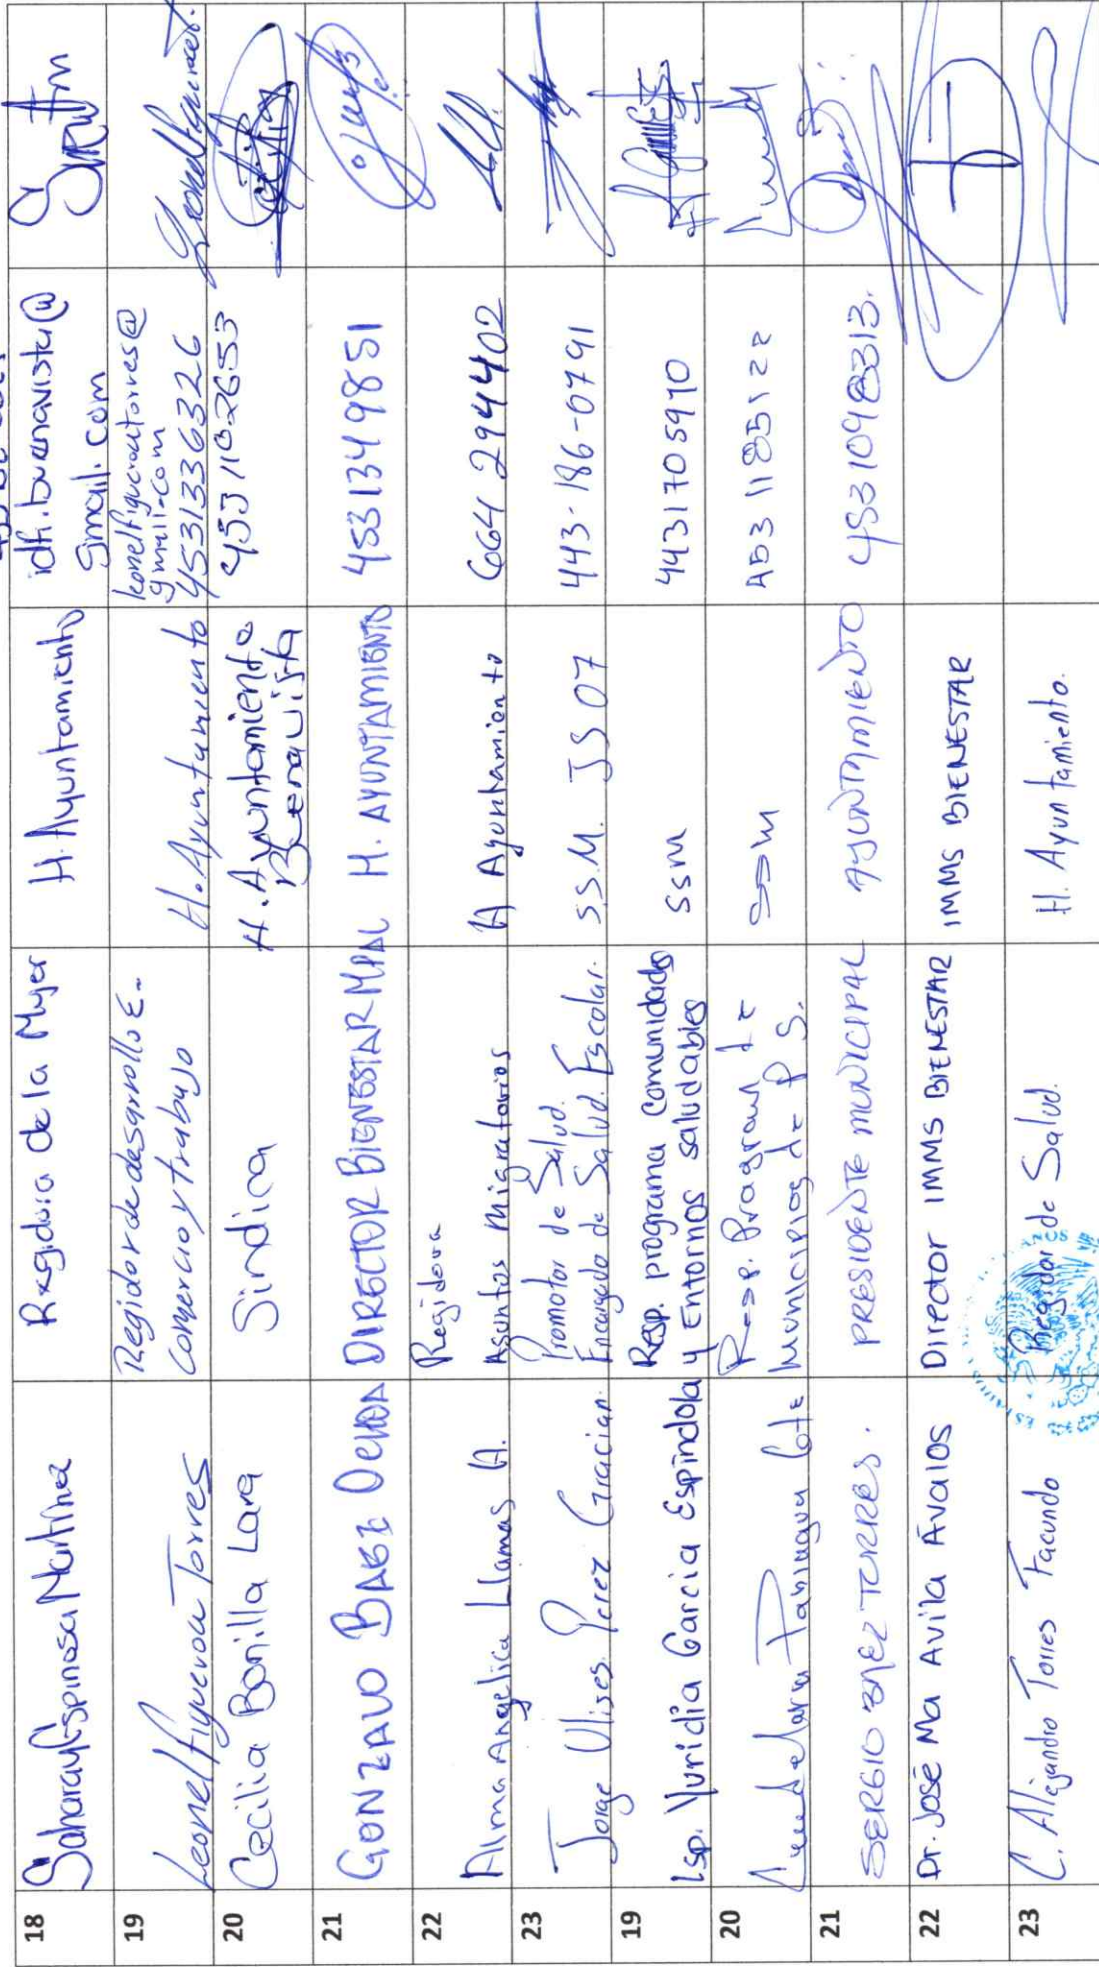 18 Saharay Espinosa Martinez Regidora de la Mujer H. Ayuntamiento idh.buenavista@
gmail.com
19 Leonel Figueroa Torres Regidor de desarrollo E.
comercio y trabajo H. Ayuntamiento leonelfigueroatorres@
gmail.com
4531336326
20 Cecilia Bonilla Lara Sindica H. Ayuntamiento
Buenavista 4531102653
21 GONZALO BAEZ OCHOA DIRECTOR BIENESTAR MPAL H. AYUNTAMIENTO 4531349851
22 Alma Angelica Llamas A. Regidora
Asuntos Migratorios H Ayuntamiento 664 2944402
23 Jorge Ulises Perez Gracian. Promotor de Salud.
Encargado de Salud Escolar. S.S.M. JS07 443-186-0791
19 Lsp. Yuridia Garcia Espindola Resp. programa comunidades
y Entornos saludables SSM 4431705910
20 Resp. Program de
Municipios de P S. SSM 4531185122
21 SERGIO BAEZ TORRES. PRESIDENTE MUNICIPAL AYUNTAMIENTO 4531098313.
22 Dr. José Ma Avila Avalos Director IMMS BIENESTAR IMMS BIENESTAR
23 C. Alejandro Torres Facundo Regidor de Salud. H. Ayuntamiento.